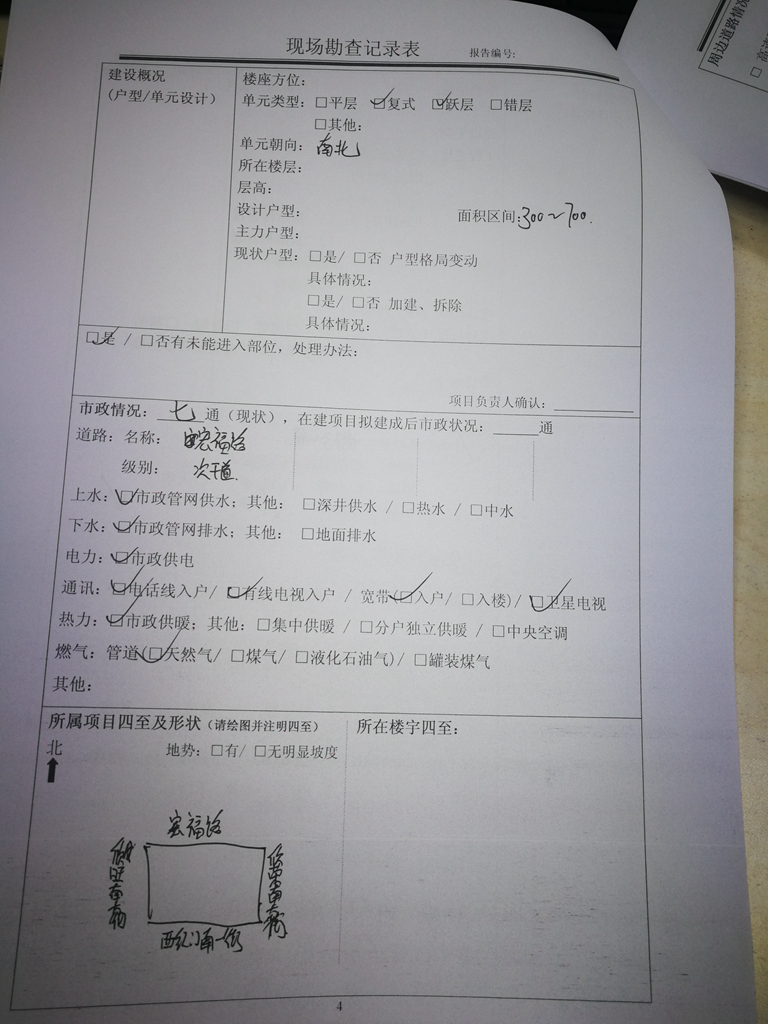 现场勘查记录表 报告编号:
建设概况
(户型/单元设计)
楼座方位:
单元类型: □平层 ☑复式 ☑跃层 □错层
□其他:
单元朝向: 南北
所在楼层:
层高:
设计户型: 面积区间: 300~700.
主力户型:
现状户型: □是/ □否 户型格局变动
具体情况:
□是/ □否 加建、拆除
具体情况:
☑是 / □否有未能进入部位, 处理办法:
项目负责人确认:
市政情况: 七 通 (现状), 在建项目拟建成后市政状况: 通
道路: 名称: 宏福路
级别: 次干道
上水: ☑市政管网供水; 其他: □深井供水 / □热水 / □中水
下水: ☑市政管网排水; 其他: □地面排水
电力: ☑市政供电
通讯: ☑电话线入户/ ☑有线电视入户 / 宽带(☑入户/ □入楼)/ ☑卫星电视
热力: ☑市政供暖; 其他: □集中供暖 / □分户独立供暖 / □中央空调
燃气: 管道(☑天然气/ □煤气/ □液化石油气)/ □罐装煤气
其他:
所属项目四至及形状 (请绘图并注明四至) 所在楼宇四至:
北 地势: □有/ □无明显坡度
宏福路
西红门南一街
4
周边道路情况